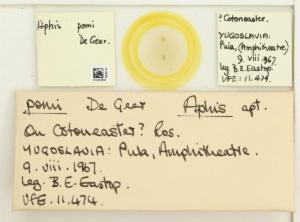 Aphis pomi
De Geer.
? Cotoneaster.
YUGOSLAVIA:
Pula, (Amphitheatre.)
9. viii. 1967.
leg. B.E. Eastop.
VFE: 11.474.
pomi De Geer Aphis apt.
On Cotoneaster? Ros.
YUGOSLAVIA: Pula, Amphitheatre.
9. viii. 1967.
leg. B.E. Eastop.
VFE. 11.474.